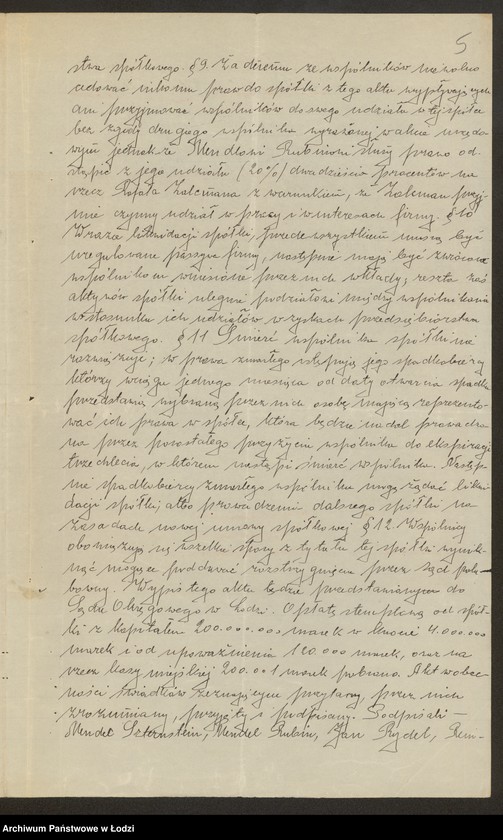 5
stwa spółkowego. § 9. Żadnemu ze wspólników nie wolno
cedować nikomu praw do spółki z tego aktu wypływających
ani przyjmować wspólników do swego udziału w tej spółce
bez zgody drugiego wspólnika wyrażonej w akcie urzędo-
wym jednakże Mendlowi Rubinowi służy prawo od-
stąpić z jego udziału (20%) dwadzieścia procentów na
rzecz Rafała Zalcmana z warunkiem, że Zalcman przyj-
mie czynny udział w pracy i w interesach firmy. § 10
W razie likwidacji spółki, przede wszystkiem muszą być
uregulowane passywa firmy, następnie mają być zwrócone
wspólnikom wniesione przez nich wkłady, reszta zaś
aktywów spółki ulegnie podziałowi między wspólnikami
w stosunku ich udziałów w zyskach przedsiębiorstwa
spółkowego. § 11 Śmierć wspólnika spółki nie
rozwiązuje; w prawa zmarłego wstępują jego spadkobiercy
którzy w ciągu jednego miesiąca od daty otwarcia spadku
przedstawią wybraną przez nich osobę mającą reprezento-
wać ich prawa w spółce, która będzie nadal prowadzo-
na przez pozostałego przy życiu wspólnika do ekspiracji
trzechlecia, w którem nastąpi śmierć wspólnika. Następ-
nie spadkobiercy zmarłego wspólnika mogą żądać likwi-
dacji spółki, albo prowadzenia dalszego spółki na
zasadach nowej umowy spółkowej § 12. Wspólnicy
obowiązują się wszelkie spory z tytułu tej spółki wynik-
nąć mogące poddawać rozstrzygnięciu przez sąd polu-
bowny. Wypis tego aktu będzie przedstawiony do
Sądu Okręgowego w Łodzi. Opłatę stemplową od spół-
ki z kapitałem 200.000.000 marek w kwocie 4.000.000
marek i od upoważnienia 120.000 marek, oraz na
rzecz kasy miejskiej 200.001 marek pobrano. Akt w obec-
ności świadków zeznającym przeczytany, przez nich
zrozumiany, przyjęty i podpisany. Podpisali —
Mendel Szternstein, Mendel Rubin, Jan Rydel, Rom-
Archiwum Państwowe w Łodzi